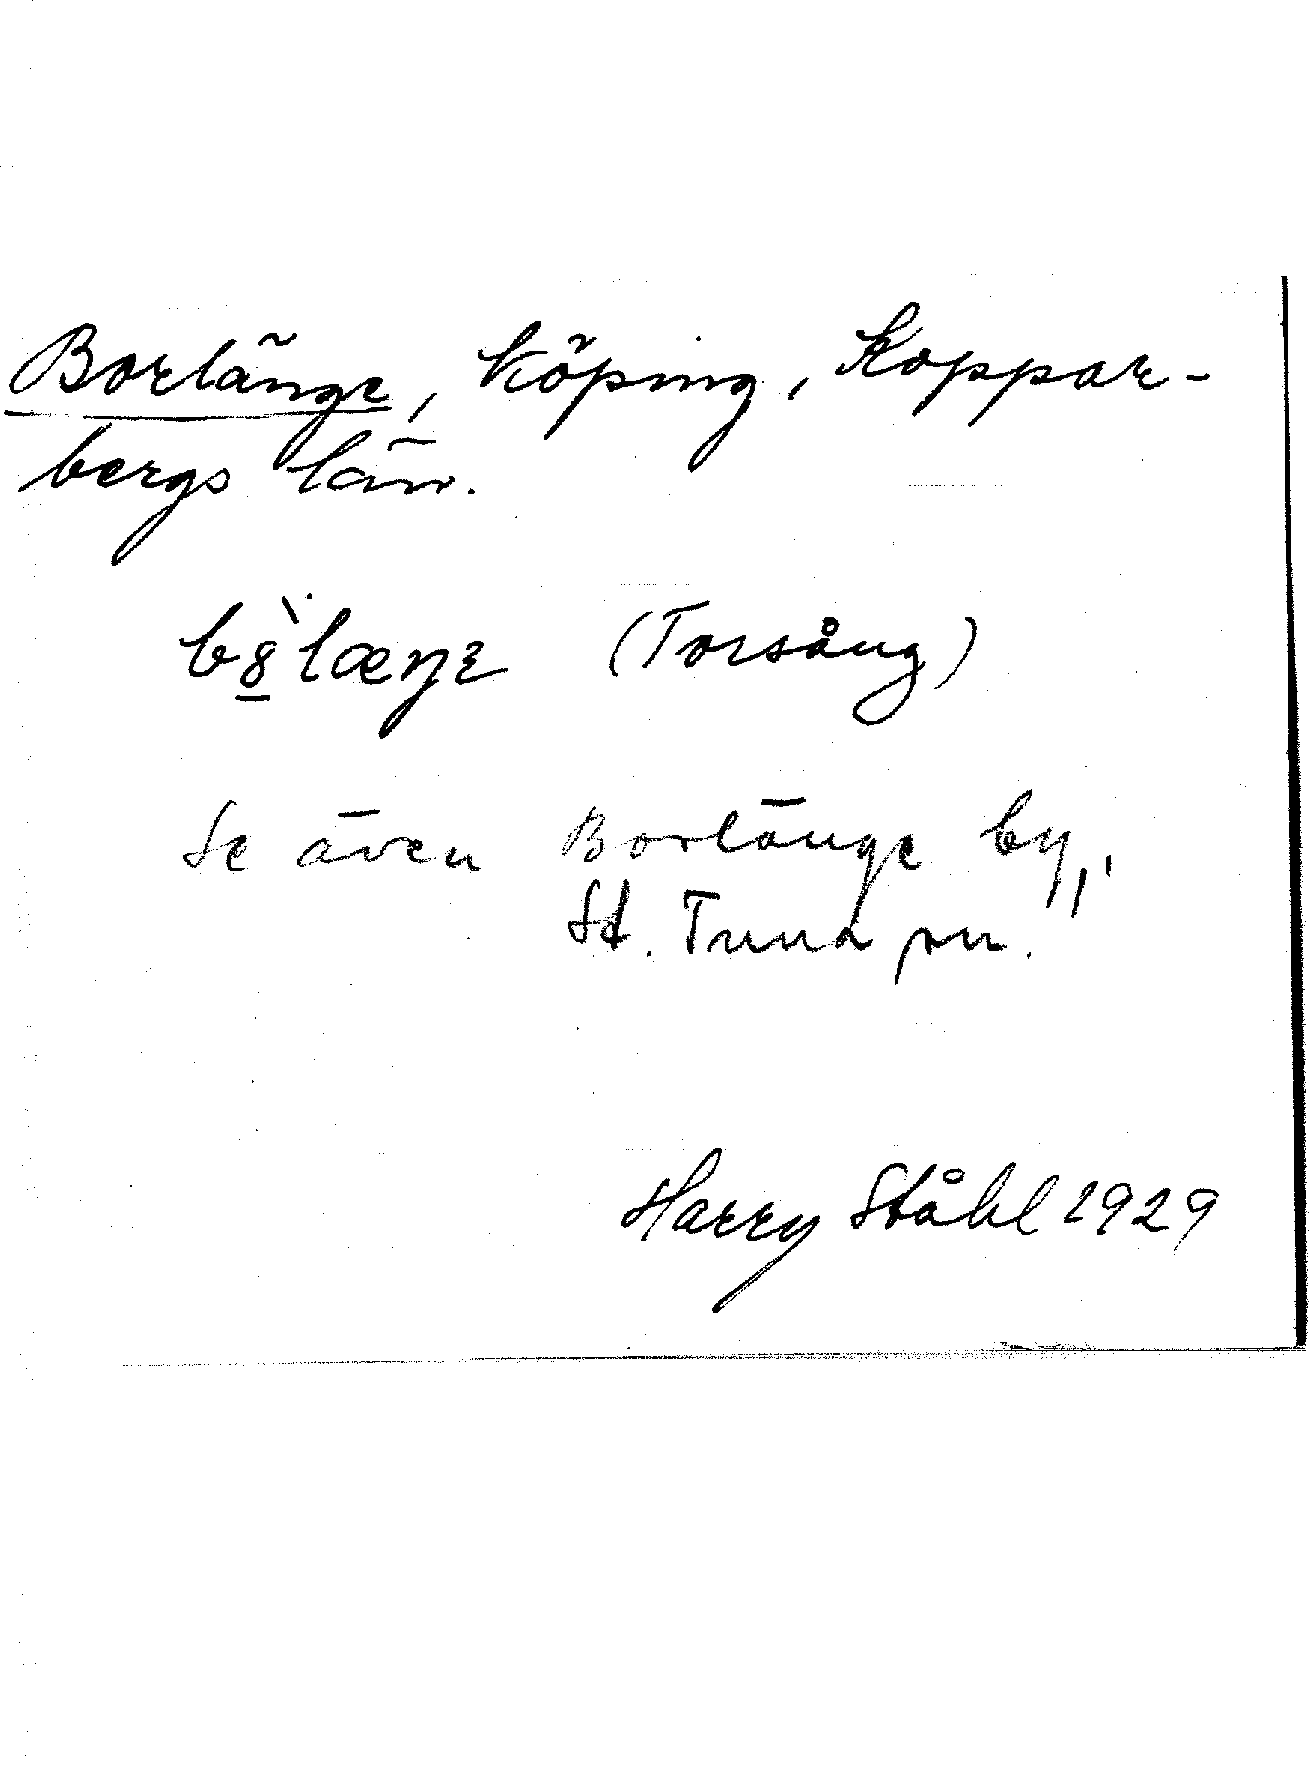 Borlänge, köping, Koppar-
bergs län.
b8̲̀læŋɛ (Torsång)
Se även Borlänge by,
St. Tuna sn.
Harry Ståhl 1929